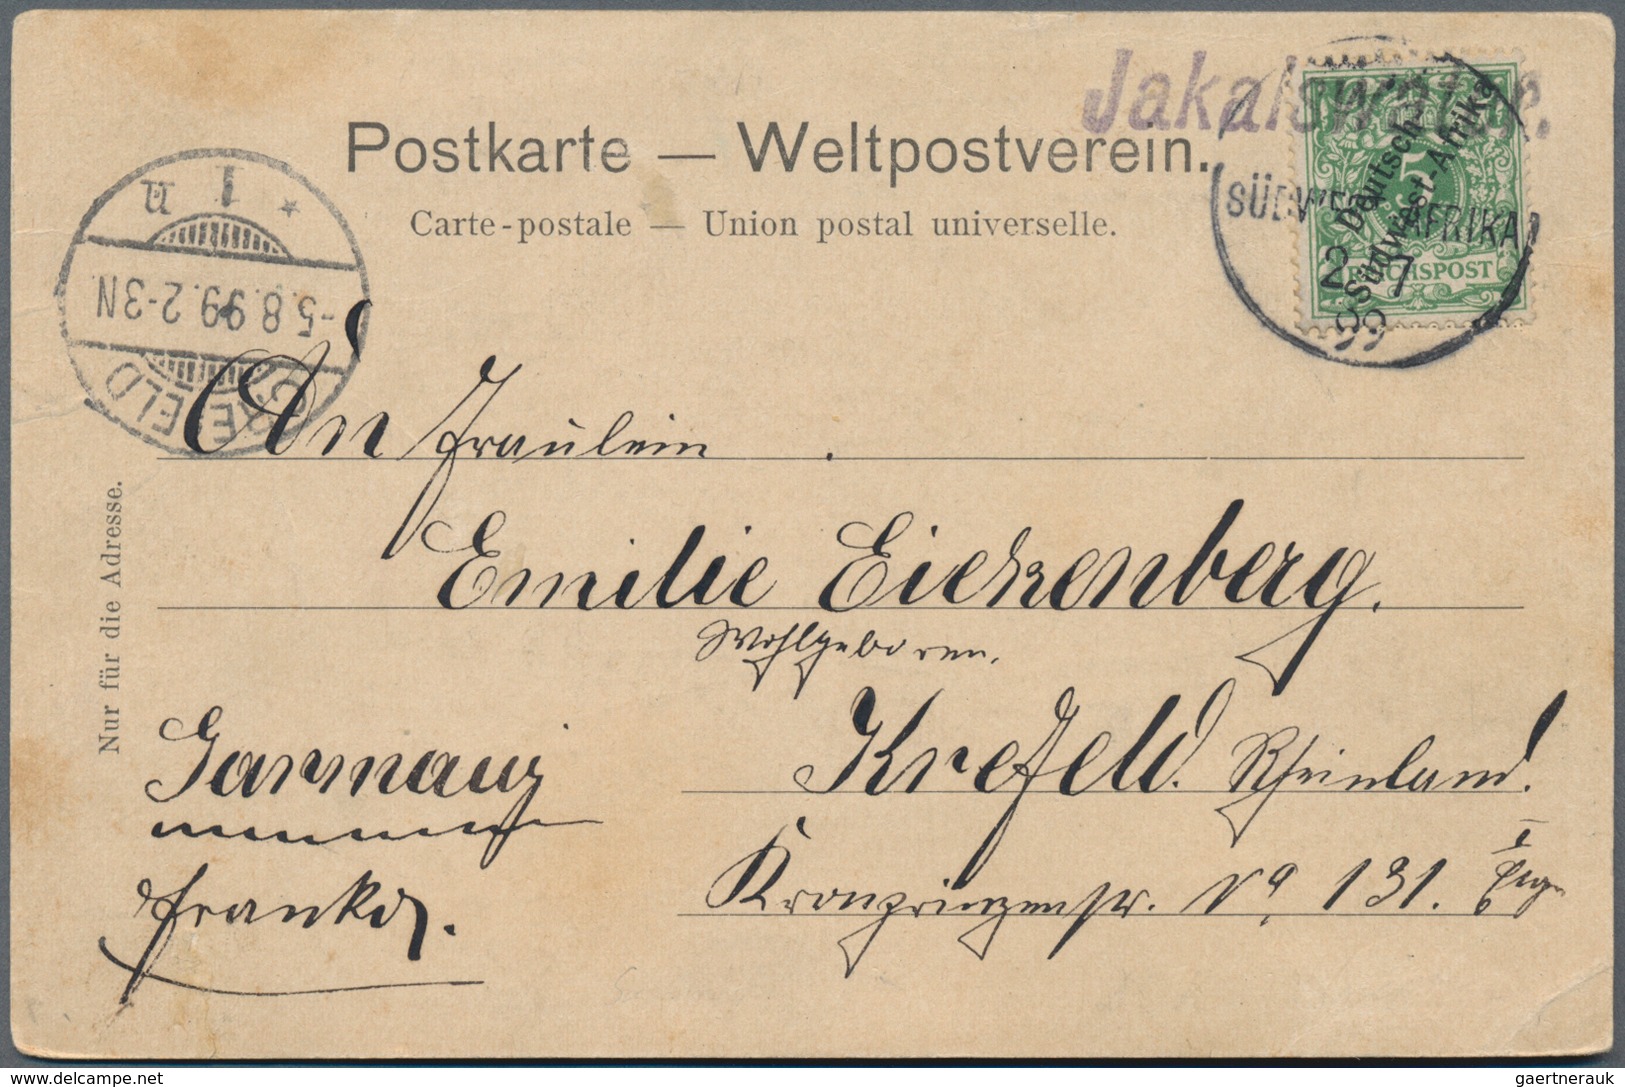 Jakalswater.
Postkarte — Weltpostverein.
Carte-postale — Union postal universelle.
SÜDWEST AFRIKA
2 7
99
Deutsch-
Südwest-Afrika
5
REICHSPOST
CREFELD
-5.8.99.2-3N.
* 1 n
An Fräulein
Emilie Eickenberg.
Wohlgeboren.
Krefeld. Rheinland.
Kronprinzenstr. No. 131. I
Garmany
Franko.
Nur für die Adresse.
delcampe.net
gaertnerauk